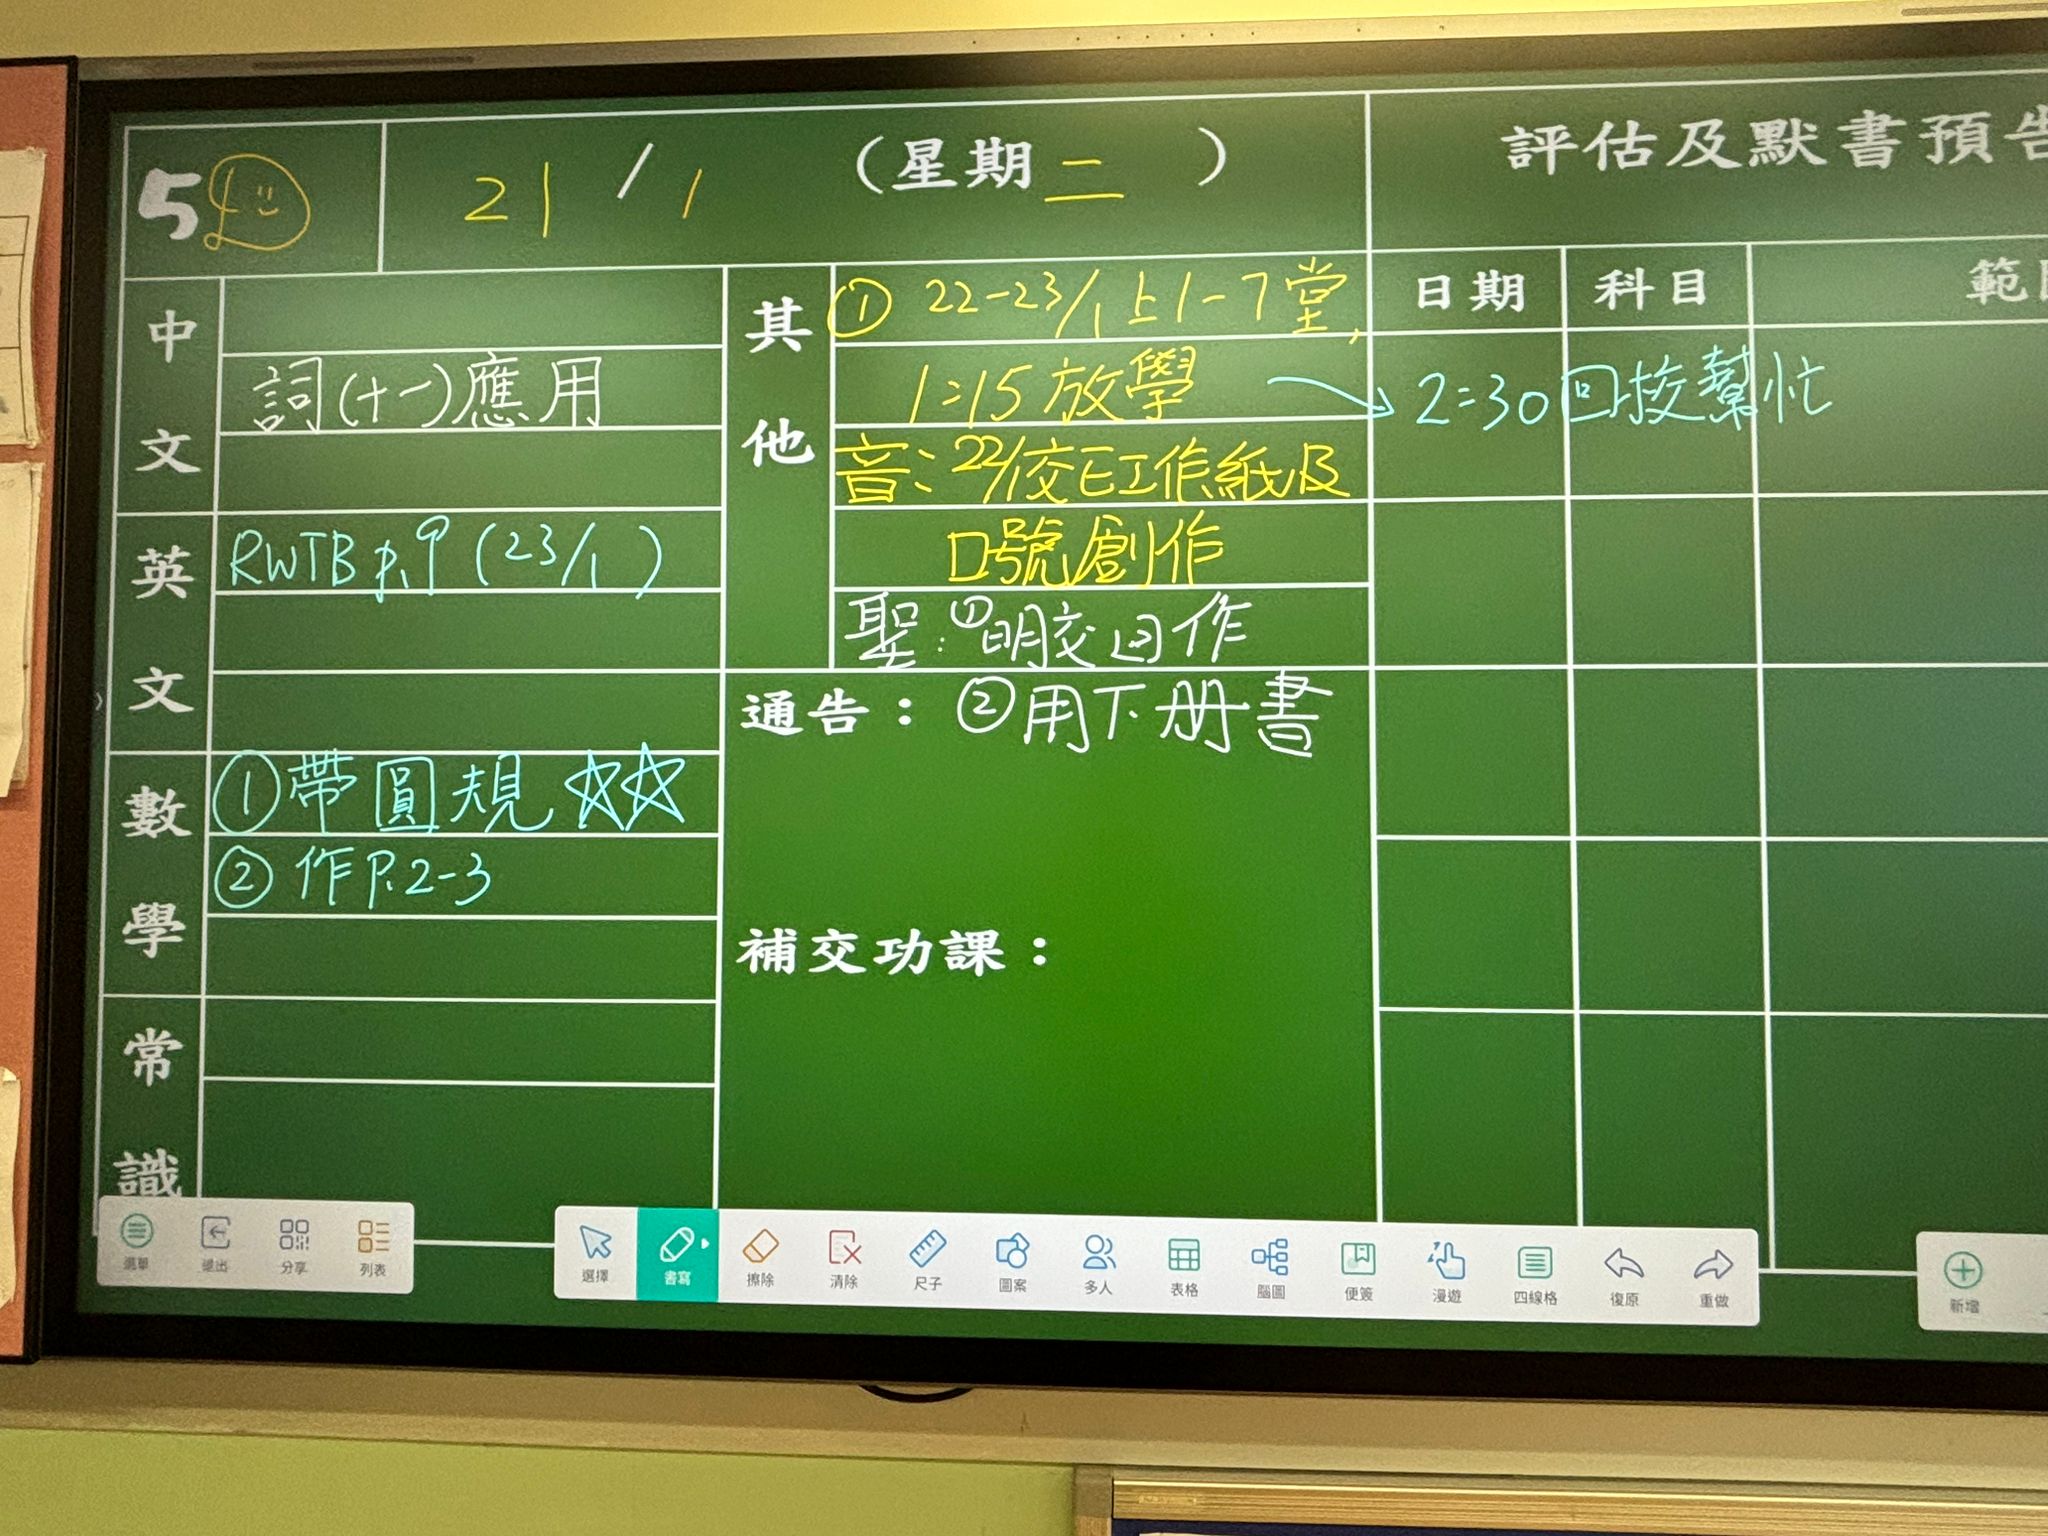 5
21 / 1 （星期二）
評估及默書預告
中文
詞(十一)應用
英文
RWTB p.9 (23/1)
數學
① 帶圓規 ☆☆
② 作 P.2-3
常識
其他
① 22-23/1 上 1-7堂,
1:15 放學 → 2:30 回校幫忙
音: 22/1交E工作紙及
口號創作
聖: ①明交回作
②用下册書
通告：
補交功課：
日期 科目
選單 退出 分享 列表
選擇 書寫 擦除 清除 尺子 圖案 多人 表格 腦圖 便簽 漫遊 四線格 復原 重做
新增